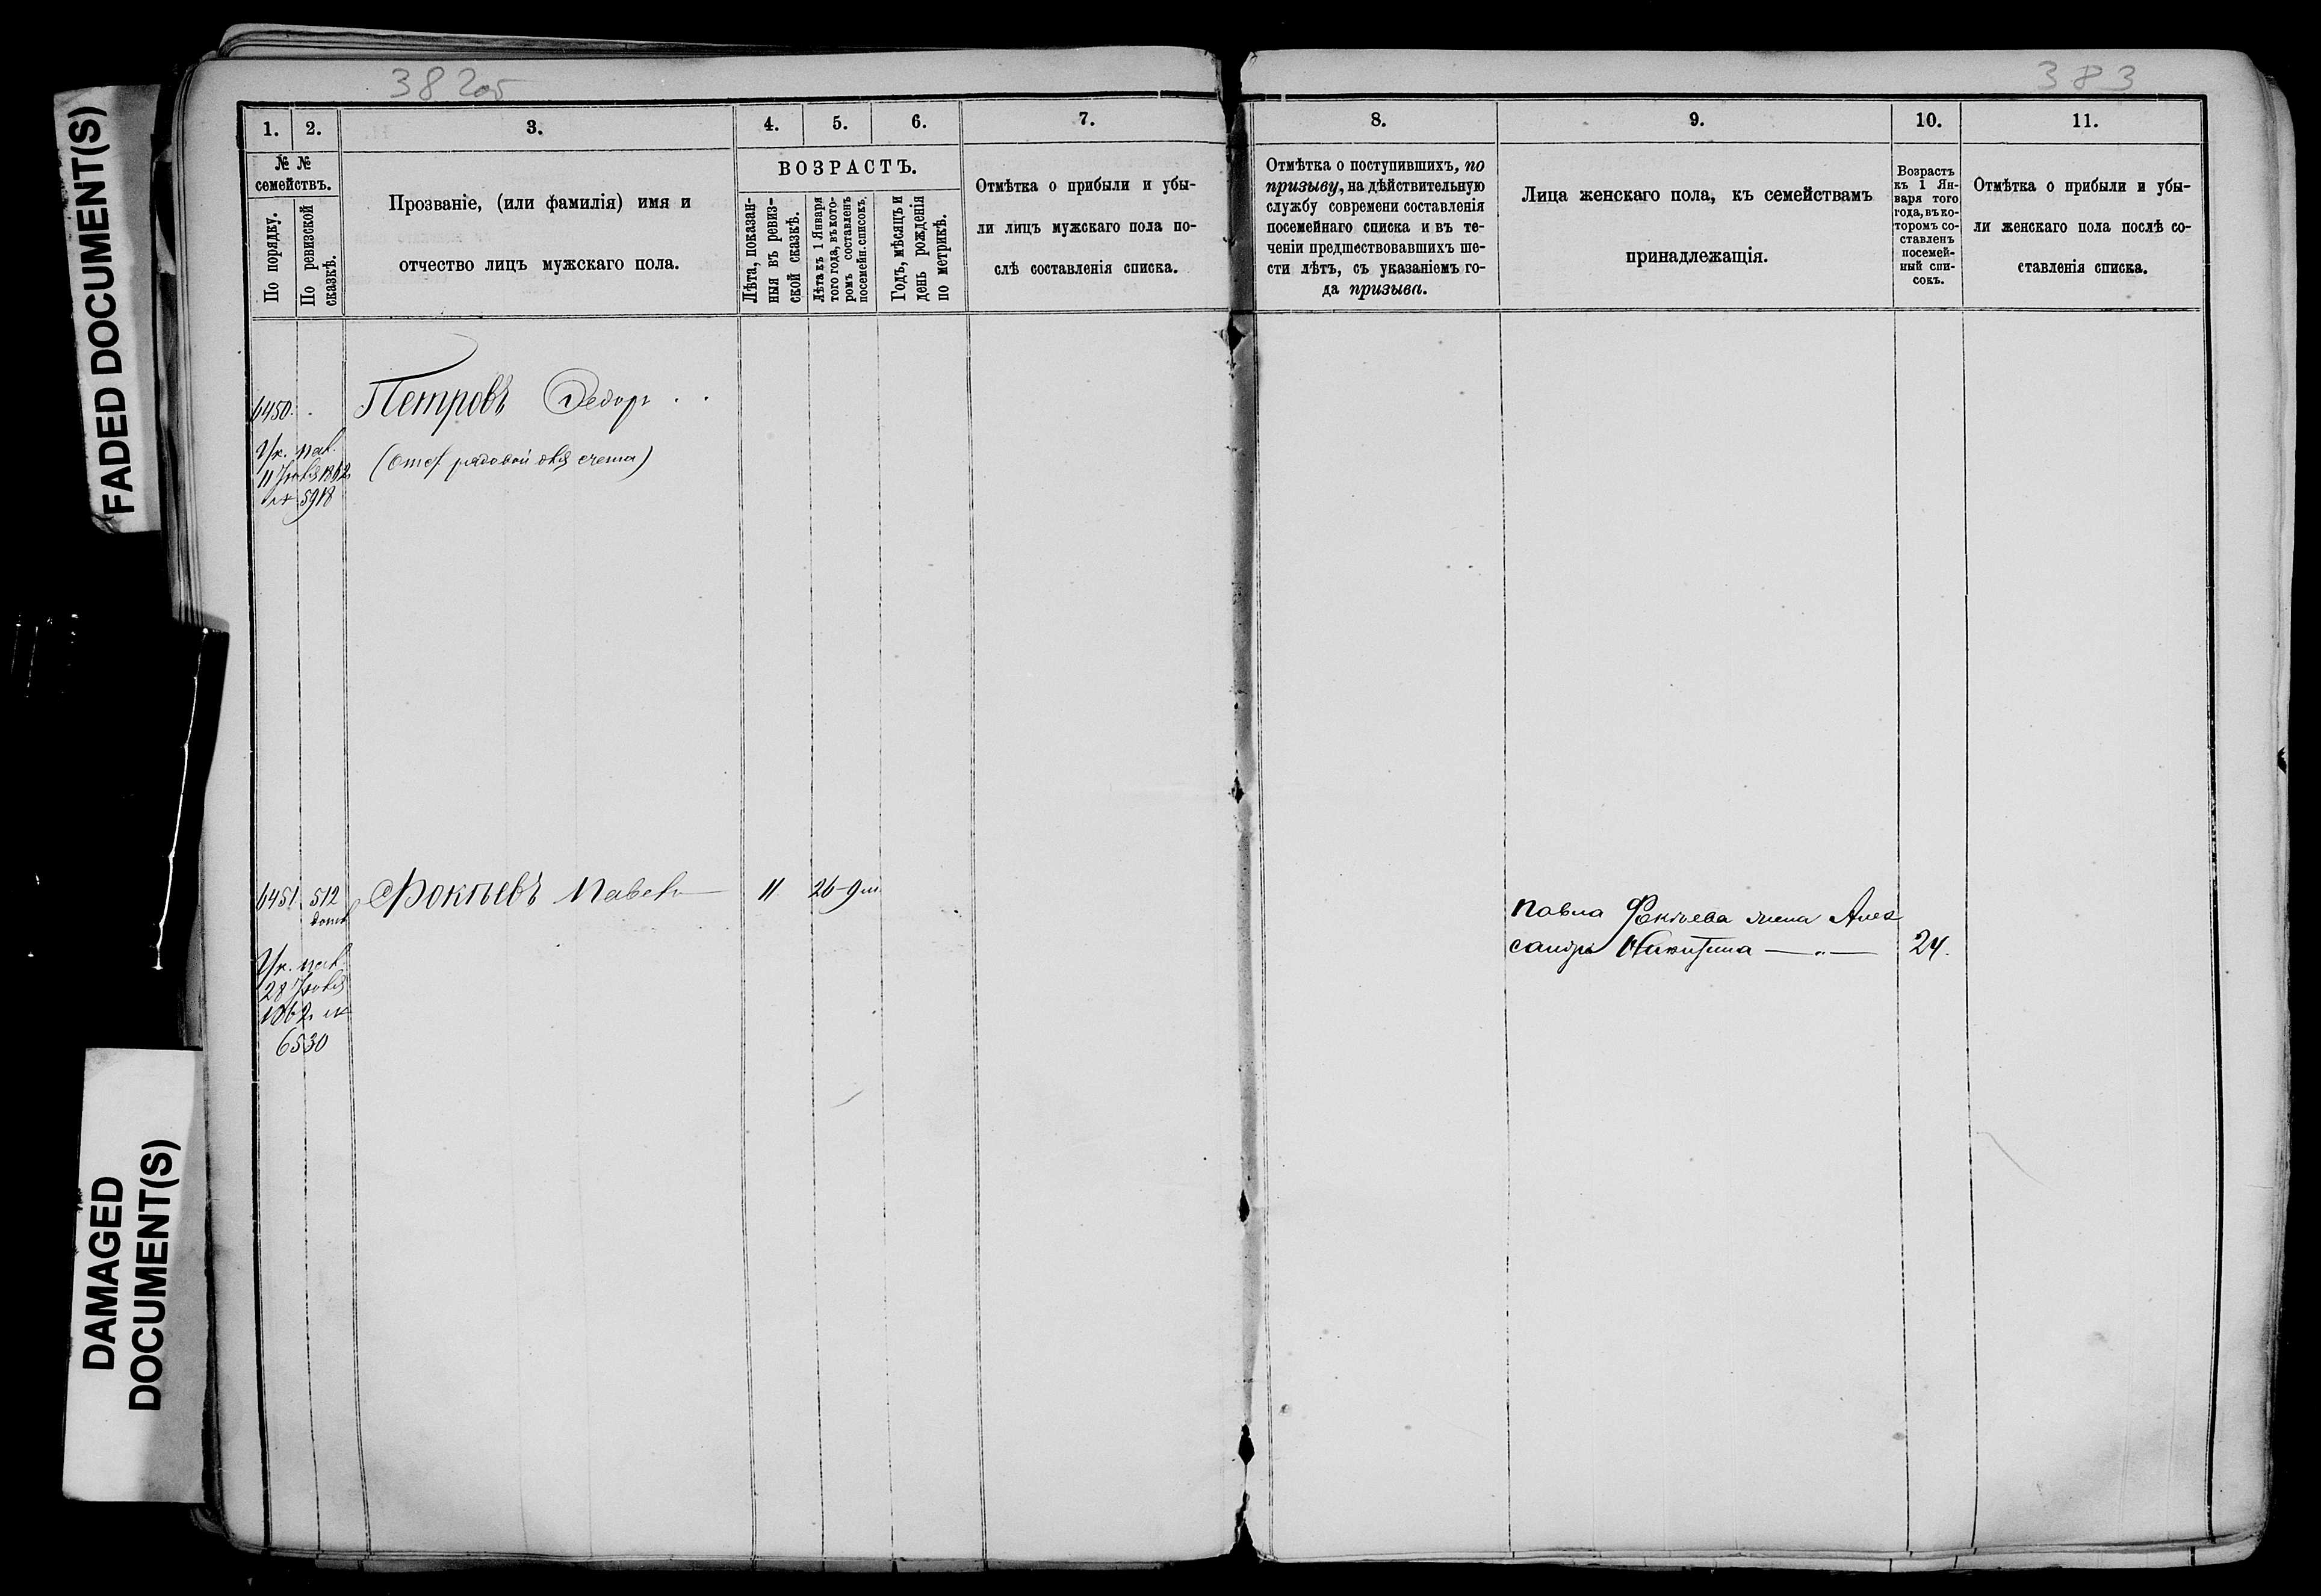 382об
383
FADED DOCUMENT(S)
DAMAGED
DOCUMENT(S)
1. 2. 3. 4. 5. 6. 7. 8. 9. 10. 11.
№ №
семействъ.
По порядку.
По ревизской
сказкѣ.
Прозваніе, (или фамилія) имя и
отчество лицъ мужскаго пола.
ВОЗРАСТЪ.
Лѣта, показан-
ныя въ ревиз-
ской сказкѣ.
Лѣта къ 1 Января
того года, въ кото-
ромъ составленъ
посемейн. списокъ.
Годъ, мѣсяцъ и
день рожденія
по метрикѣ.
Отмѣтка о прибыли и убы-
ли лицъ мужскаго пола по-
слѣ составленія списка.
Отмѣтка о поступившихъ, по
призыву, на дѣйствительную
службу современи составленія
посемейнаго списка и въ те-
ченіи предшествовавшихъ ше-
сти лѣтъ, съ указаніемъ го-
да призыва.
Лица женскаго пола, къ семействамъ
принадлежащія.
Возрастъ
къ 1 Ян-
варя того
года, въ ко-
торомъ со-
ставленъ
посемей-
ный спи-
сокъ.
Отмѣтка о прибыли и убы-
ли женскаго пола послѣ со-
ставленія списка.
6450. Петровъ Ѳедоръ
Ук. пал.
11 Іюля 1862
№ 5918
(Отст рядовой для счета)
6451 512 Фокѣевъ Павелъ 11 26-9 м
доп
Ук. пал.
28 Іюля
1862 №
6530
Павла Фокѣева жена Алек
сандра Никитина 24.